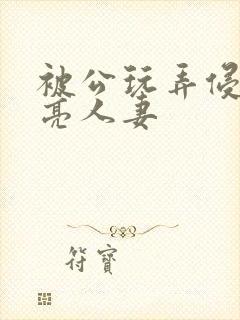 被公玩弄侵
亮人妻
符寶